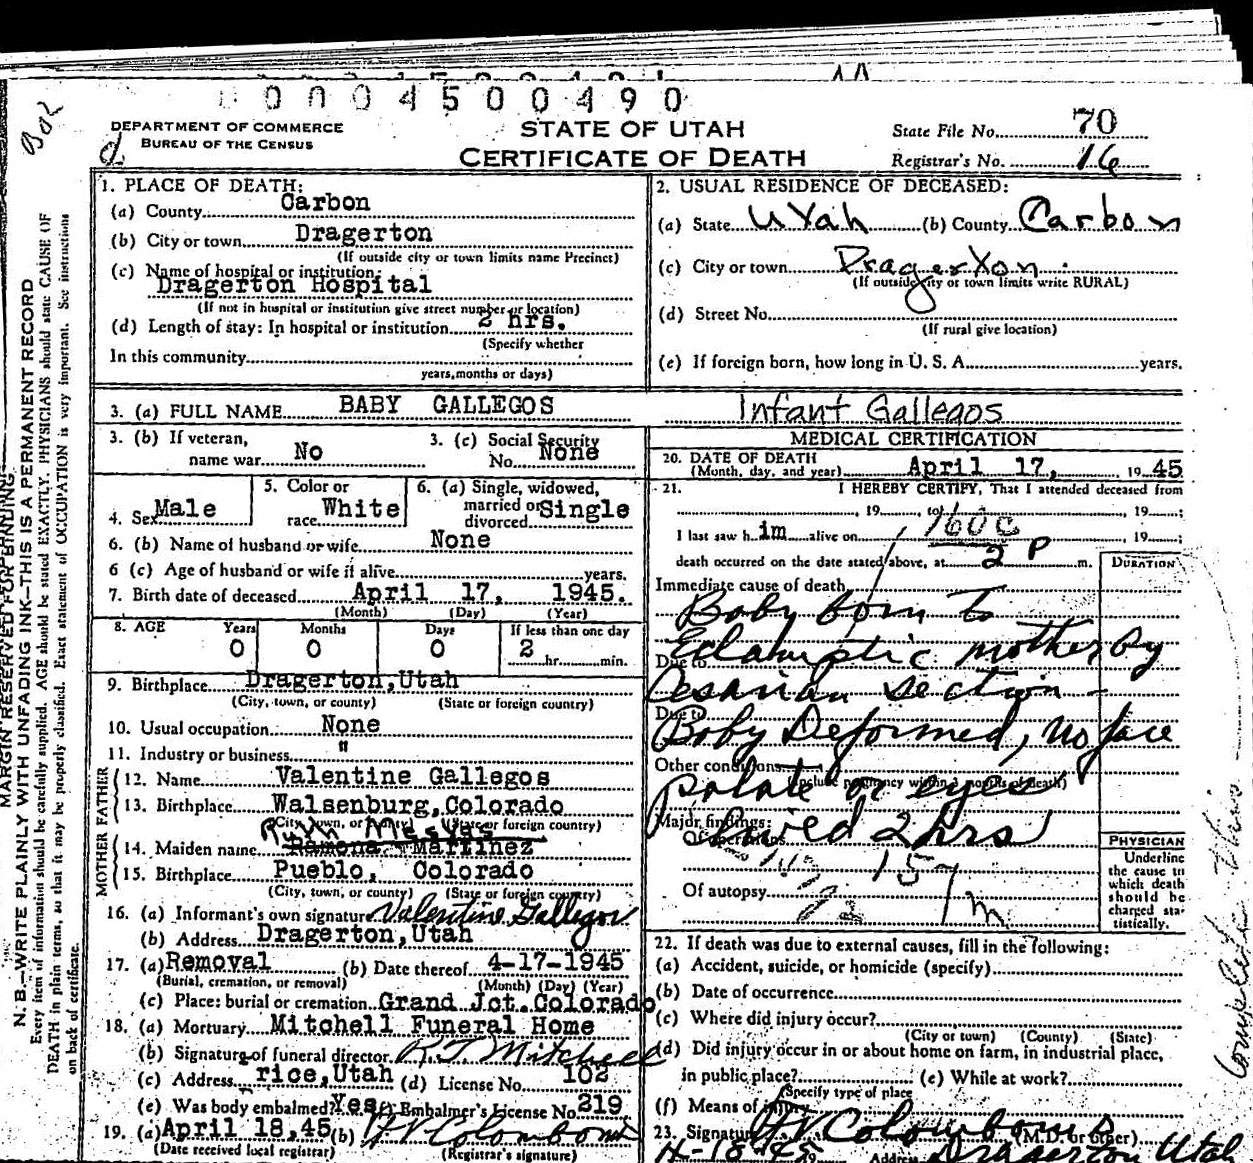 0004500490
Box
d.
DEPARTMENT OF COMMERCE
BUREAU OF THE CENSUS
STATE OF UTAH
CERTIFICATE OF DEATH
State File No. 70
Registrar's No. 16
MARGIN RESERVED FOR BINDING
N. B.—WRITE PLAINLY WITH UNFADING INK—THIS IS A PERMANENT RECORD
Every item of information should be carefully supplied. AGE should be stated EXACTLY. PHYSICIANS should state CAUSE OF
DEATH in plain terms, so that it may be properly classified. Exact statement of OCCUPATION is very important. See instructions
on back of certificate.
1. PLACE OF DEATH:
(a) County Carbon
(b) City or town Dragerton
(If outside city or town limits name Precinct)
(c) Name of hospital or institution:
Dragerton Hospital
(If not in hospital or institution give street number or location)
(d) Length of stay: In hospital or institution 2 hrs.
(Specify whether
In this community
years, months or days)
2. USUAL RESIDENCE OF DECEASED:
(a) State Utah (b) County Carbon
(c) City or town Dragerton
(If outside city or town limits write RURAL)
(d) Street No.
(If rural give location)
(e) If foreign born, how long in U. S. A. years.
3. (a) FULL NAME BABY GALLEGOS Infant Gallegos
3. (b) If veteran,
name war No
3. (c) Social Security
No. None
4. Sex Male
5. Color or
race White
6. (a) Single, widowed,
married or
divorced Single
6. (b) Name of husband or wife None
6 (c) Age of husband or wife if alive years.
7. Birth date of deceased April 17, 1945.
(Month) (Day) (Year)
8. AGE Years Months Days If less than one day
0 0 0 2
hr. min.
9. Birthplace Dragerton, Utah
(City, town, or county) (State or foreign country)
10. Usual occupation None
11. Industry or business "
FATHER
12. Name Valentine Gallegos
13. Birthplace Walsenburg, Colorado
(City, town, or county) (State or foreign country)
MOTHER
Ruth
14. Maiden name Ramona Martinez
15. Birthplace Pueblo, Colorado
(City, town, or county) (State or foreign country)
16. (a) Informant's own signature Valentine Gallegos
(b) Address Dragerton, Utah
17. (a) Removal (b) Date thereof 4-17-1945
(Burial, cremation, or removal) (Month) (Day) (Year)
(c) Place: burial or cremation Grand Jct. Colorado
18. (a) Mortuary Mitchell Funeral Home
(b) Signature of funeral director Mitchell
(c) Address rice, Utah (d) License No. 102
(e) Was body embalmed? Yes (f) Embalmer's License No. 219
19. (a) April 18, 45 (b) Colombo
(Date received local registrar) (Registrar's signature)
MEDICAL CERTIFICATION
20. DATE OF DEATH
(Month, day, and year) April 17, 1945
21. I HEREBY CERTIFY, That I attended deceased from
, 19 , to , 19 ;
160c
I last saw h im alive on , 19 ;
death occurred on the date stated above, at 2 P m.
DURATION
Immediate cause of death
Baby born to
Eclamptic mother by
Due to
Cesarian section -
Due to
Baby Deformed, no face
Other conditions
(Include pregnancy within 3 months of death)
palate or eyes
Major findings:
Lived 2 hrs
Of operations
157
Of autopsy
m
PHYSICIAN
Underline
the cause to
which death
should be
charged sta-
tistically.
22. If death was due to external causes, fill in the following:
(a) Accident, suicide, or homicide (specify)
(b) Date of occurrence
(c) Where did injury occur?
(City or town) (County) (State)
(d) Did injury occur in or about home on farm, in industrial place,
in public place? (e) While at work?
(Specify type of place
(f) Means of injury
23. Signature Colombo (M.D. or other)
4-18-45 Address Dragerton Utah